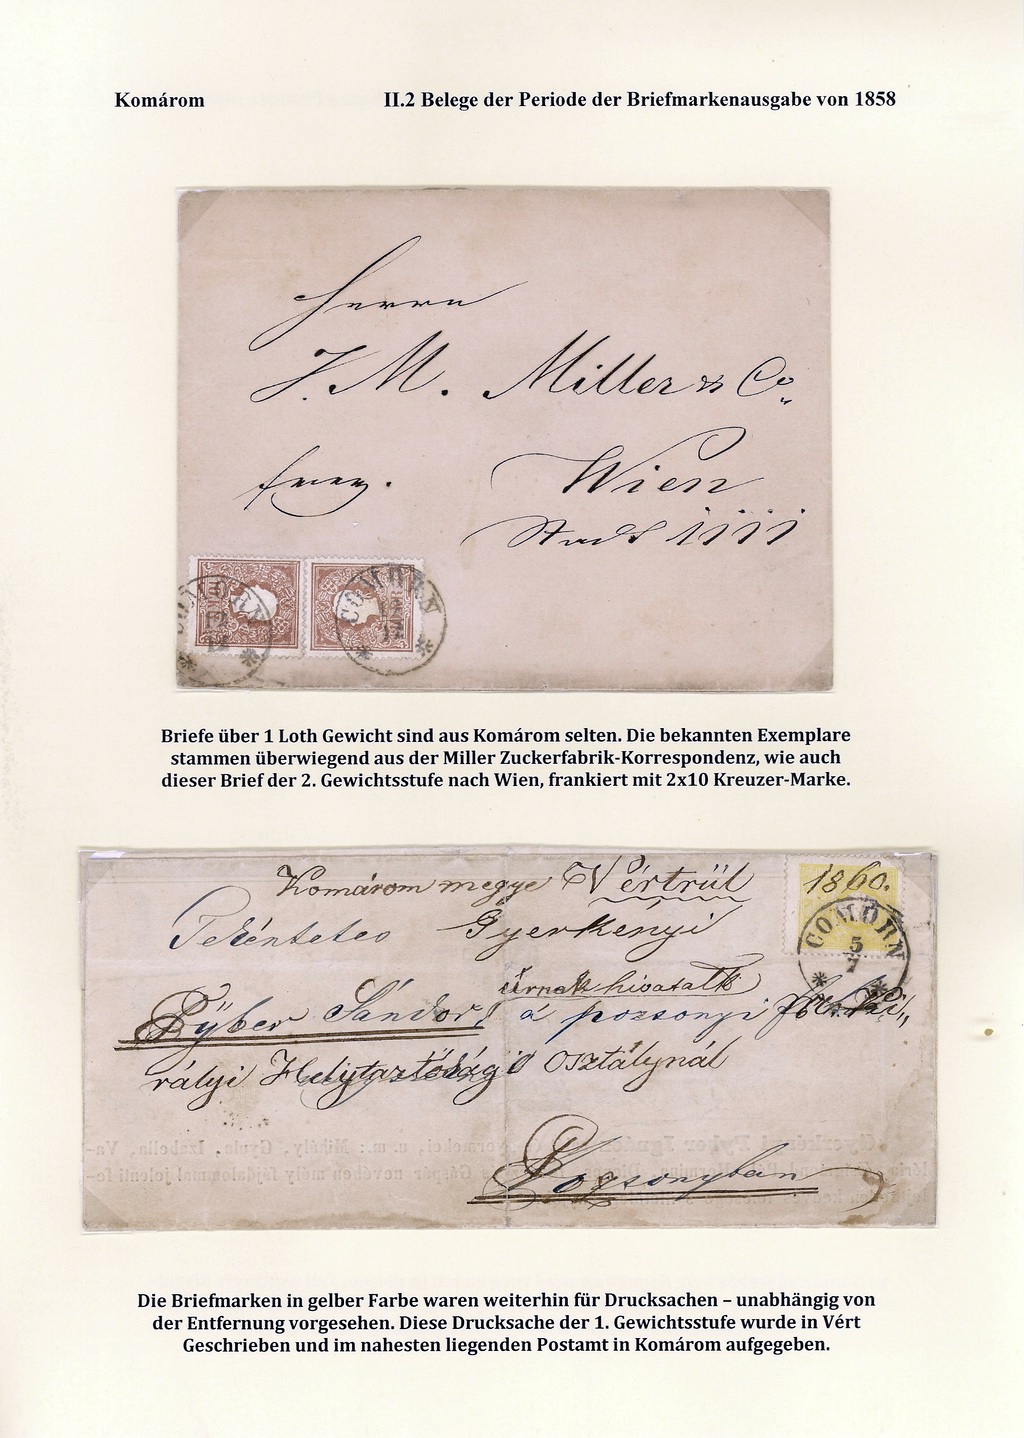 Komárom II.2 Belege der Periode der Briefmarkenausgabe von 1858
Herrn
J. M. Miller & Co.
Wien
Stadt 1111
COMORN
COMORN
Briefe über 1 Loth Gewicht sind aus Komárom selten. Die bekannten Exemplare
stammen überwiegend aus der Miller Zuckerfabrik-Korrespondenz, wie auch
dieser Brief der 2. Gewichtsstufe nach Wien, frankiert mit 2x10 Kreuzer-Marke.
Komárom megye Vértrül
1860.
COMORN
5
7
Tekéntetes Gyerkényi
úrnak hivatalb
Pÿber Sándor á pozsonyi
rályi Helytaztósági osztálynál
Pozsonyban
Die Briefmarken in gelber Farbe waren weiterhin für Drucksachen – unabhängig von
der Entfernung vorgesehen. Diese Drucksache der 1. Gewichtsstufe wurde in Vért
Geschrieben und im nahesten liegenden Postamt in Komárom aufgegeben.